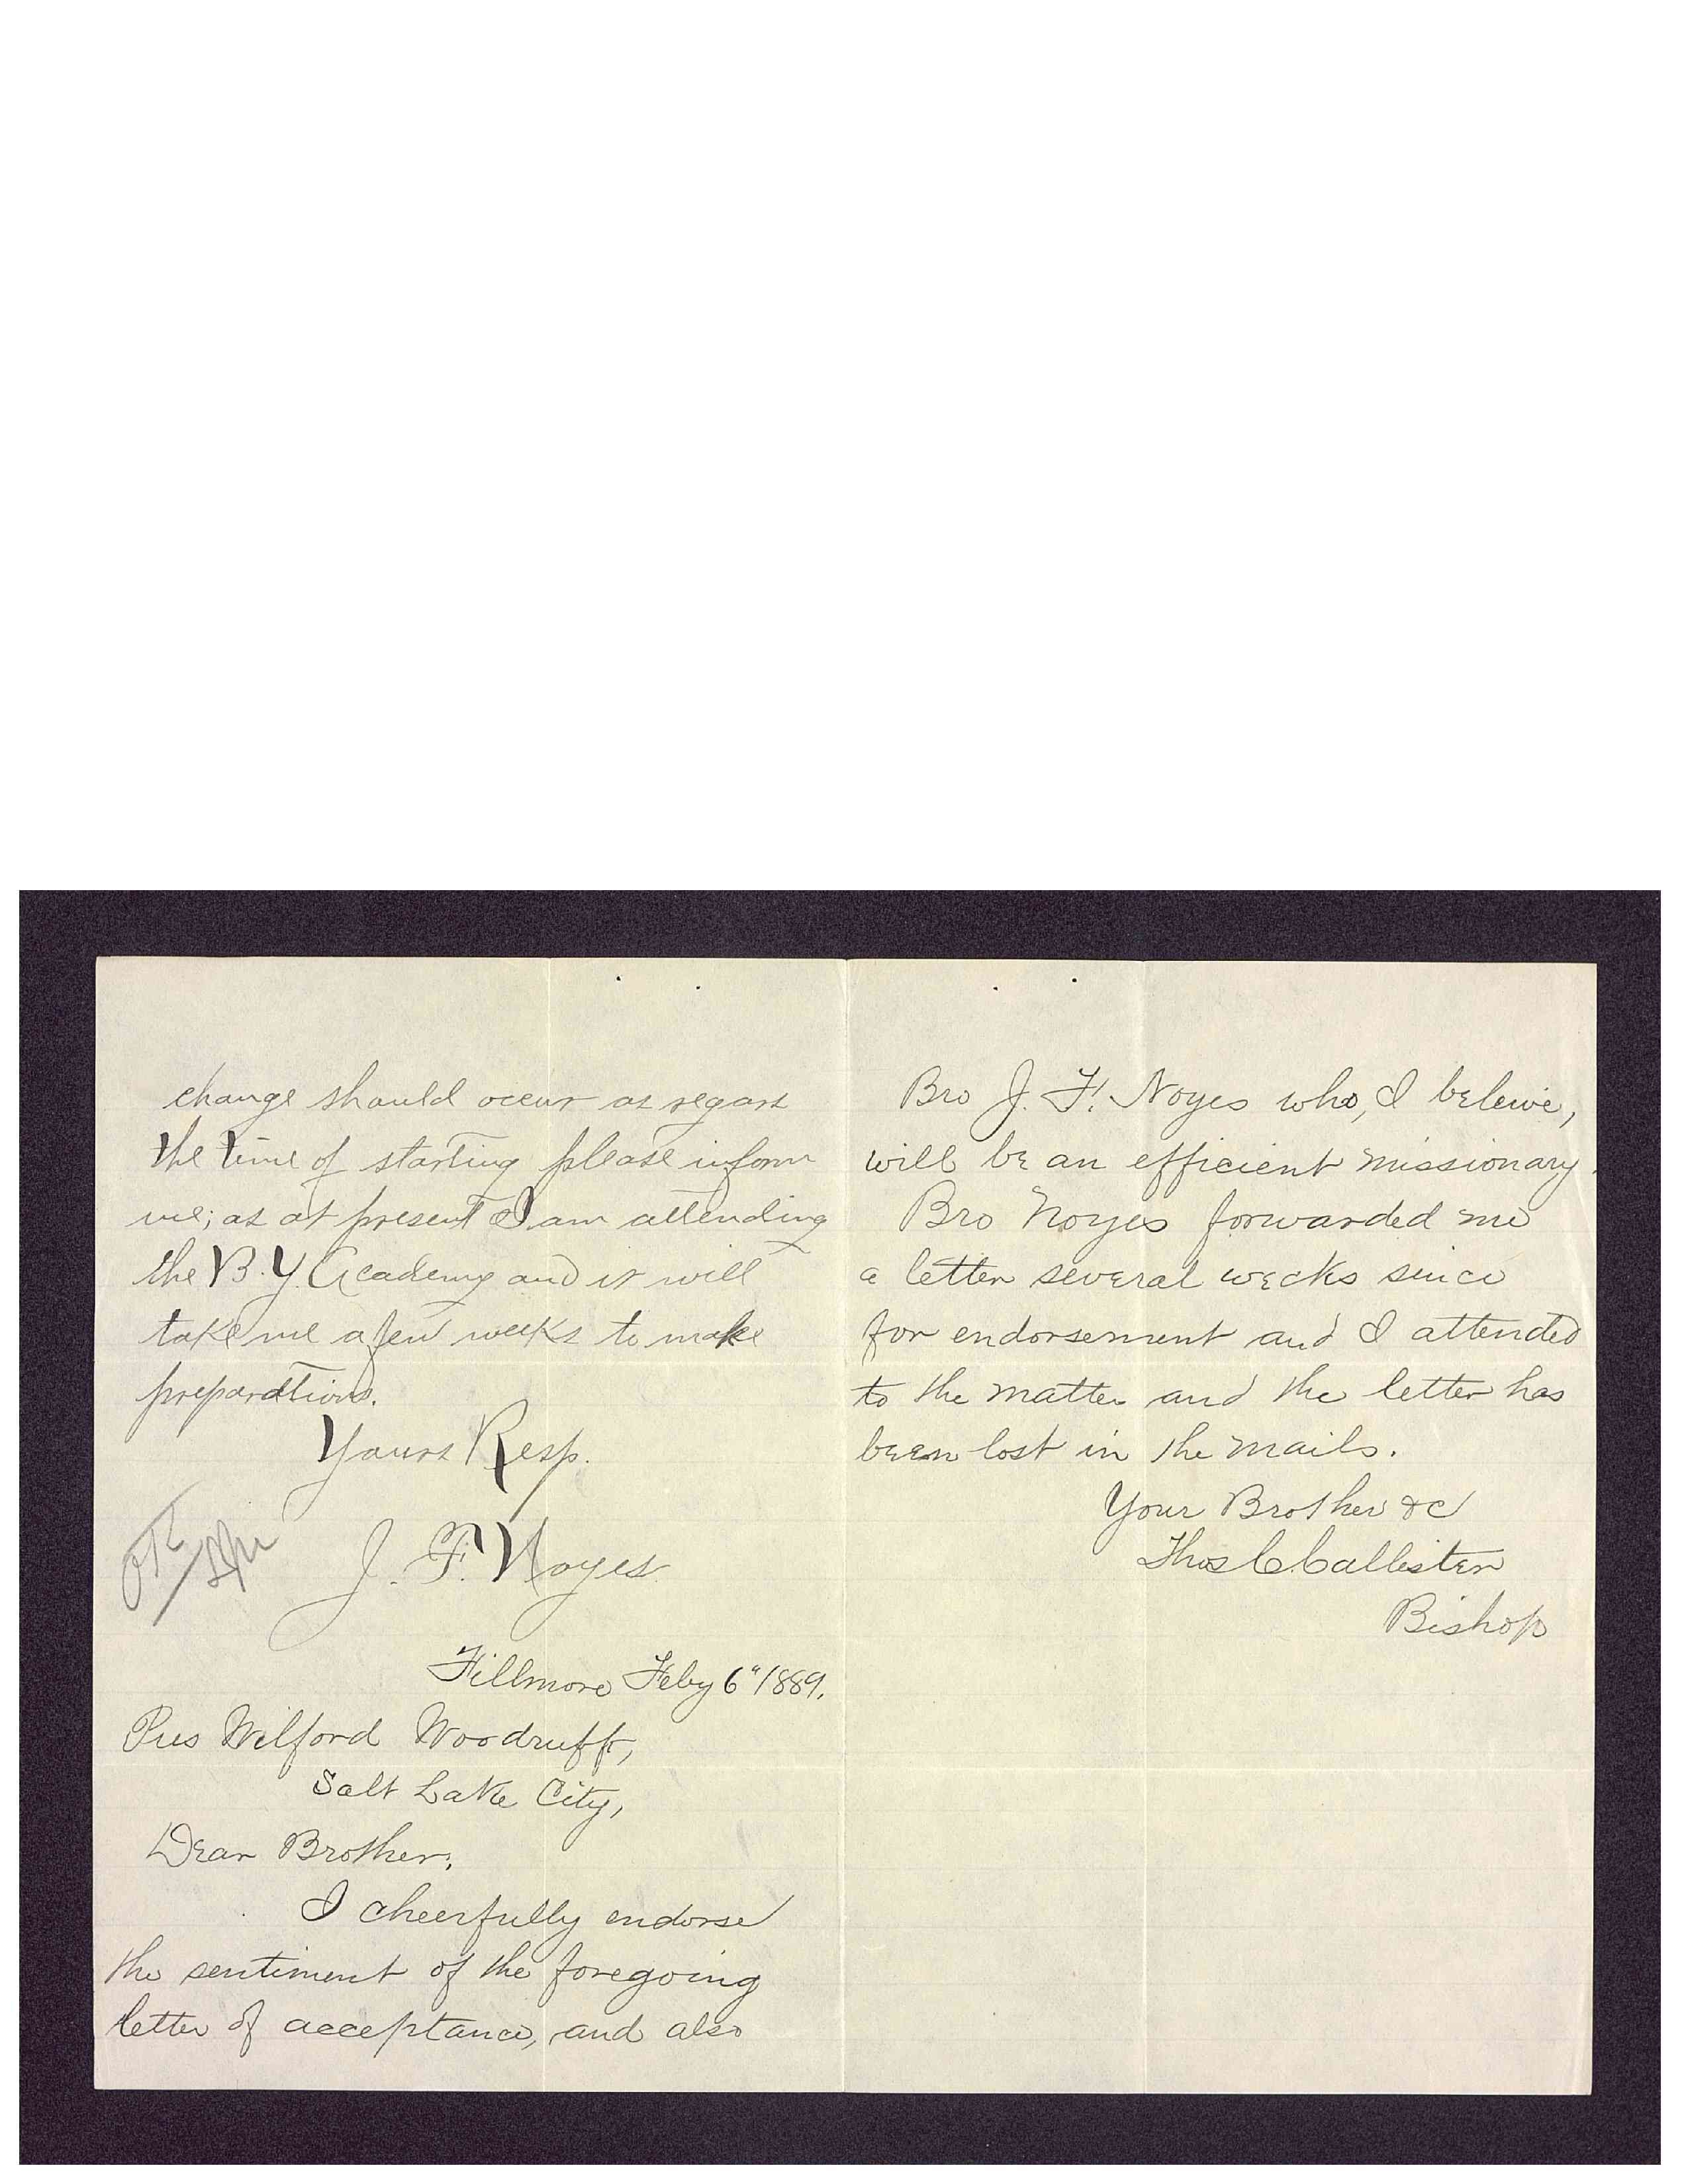 change should occur as regars
the time of starting please inform
me; as at present I am attending
the B.Y. Academy and it will
take me a few weeks to make
preparations.
Yours Resp.
J. F. Noyes
OK
Fillmore Feby 6" 1889.
Pres Wilford Woodruff,
Salt Lake City,
Dear Brother;
I cheerfully endorse
the sentiment of the foregoing
letter of acceptance, and also
Bro J. F. Noyes who, I beleive,
will be an efficient missionary.
Bro Noyes forwarded me
a letter several weeks since
for endorsement and I attended
to the matter and the letter has
been lost in the mails.
Your Brother &c
Thos C Callister
Bishop